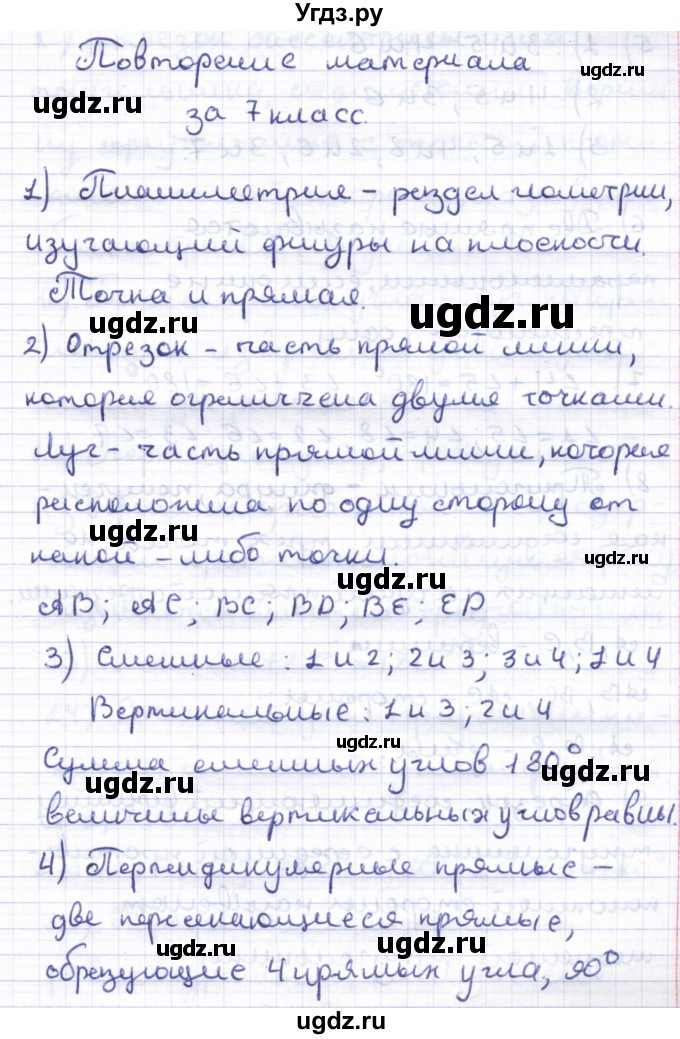 Угдз.ру
Повторение материала
ugdz.ru
за 7 класс.
ugdz.ru
1) Планиметрия – раздел геометрии,
изучающий фигуры на плоскости.
Точка и прямая.
ugdz.ru
ugdz.ru
ugdz.ru
2) Отрезок – часть прямой линии,
которая ограничена двумя точками.
Луч – часть прямой линии, которая
расположена по одну сторону от
ugdz.ru
какой – либо точки.
ugdz.ru
ugdz.ru
AB; AC; BC; BD; BE; ED
3) Смежные : 1 и 2; 2 и 3; 3 и 4; 1 и 4
Вертикальные : 1 и 3; 2 и 4
ugdz.ru
Сумма смежных углов 180°
ugdz.ru
ugdz.ru
величины вертикальных углов равны.
4) Перпендикулярные прямые –
ugdz.ru
две пересекающиеся прямые,
ugdz.ru
ugdz.ru
образующие 4 прямых угла, 90°
ugdz.ru